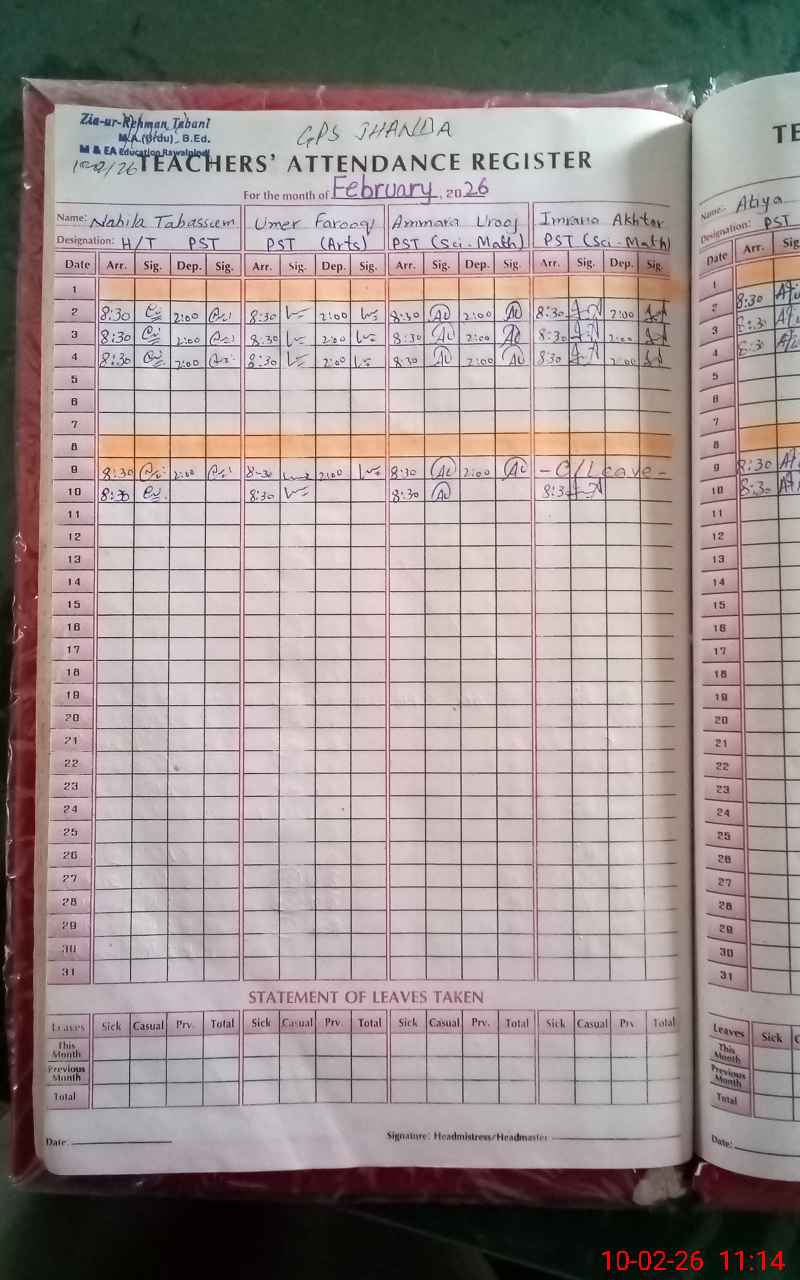 Zia-ur-Rehman Tabani
M.A.(Urdu), B.Ed.
M & EA Education Rawalpindi
GPS JHANDA
TEACHERS' ATTENDANCE REGISTER
For the month of February, 2026
Name: Nabila Tabassum Umer Farooq Ammara Urooj Imrana Akhtar
Designation: H/T PST PST (Arts) PST (Sci-Math) PST (Sci-Math)
Date Arr. Sig. Dep. Sig. Arr. Sig. Dep. Sig. Arr. Sig. Dep. Sig. Arr. Sig. Dep. Sig.
1
2 8:30 2:00 8:30 2:00 8:30 2:00 8:30 2:00
3 8:30 2:00 8:30 2:00 8:30 2:00 8:30 2:00
4 8:30 2:00 8:30 2:00 8:30 2:00 8:30 2:00
5
6
7
8
9 8:30 2:00 8:30 2:00 8:30 2:00 - C/Leave -
10 8:30 8:30 8:30 8:30
11
12
13
14
15
16
17
18
19
20
21
22
23
24
25
26
27
28
29
30
31
STATEMENT OF LEAVES TAKEN
Leaves Sick Casual Prv. Total Sick Casual Prv. Total Sick Casual Prv. Total Sick Casual Prv Total
This Month
Previous Month
Total
Date: Signature: Headmistress/Headmaster
TE
Name:- Atiya
Designation: PST
Date Arr. Sig
1
2 8:30
3 8:30
4 8:30
5
6
7
8
9 8:30
10 8:30
11
12
13
14
15
16
17
18
19
20
21
22
23
24
25
26
27
28
29
30
31
Leaves Sick C
This Month
Previous Month
Total
Date:
10-02-26 11:14